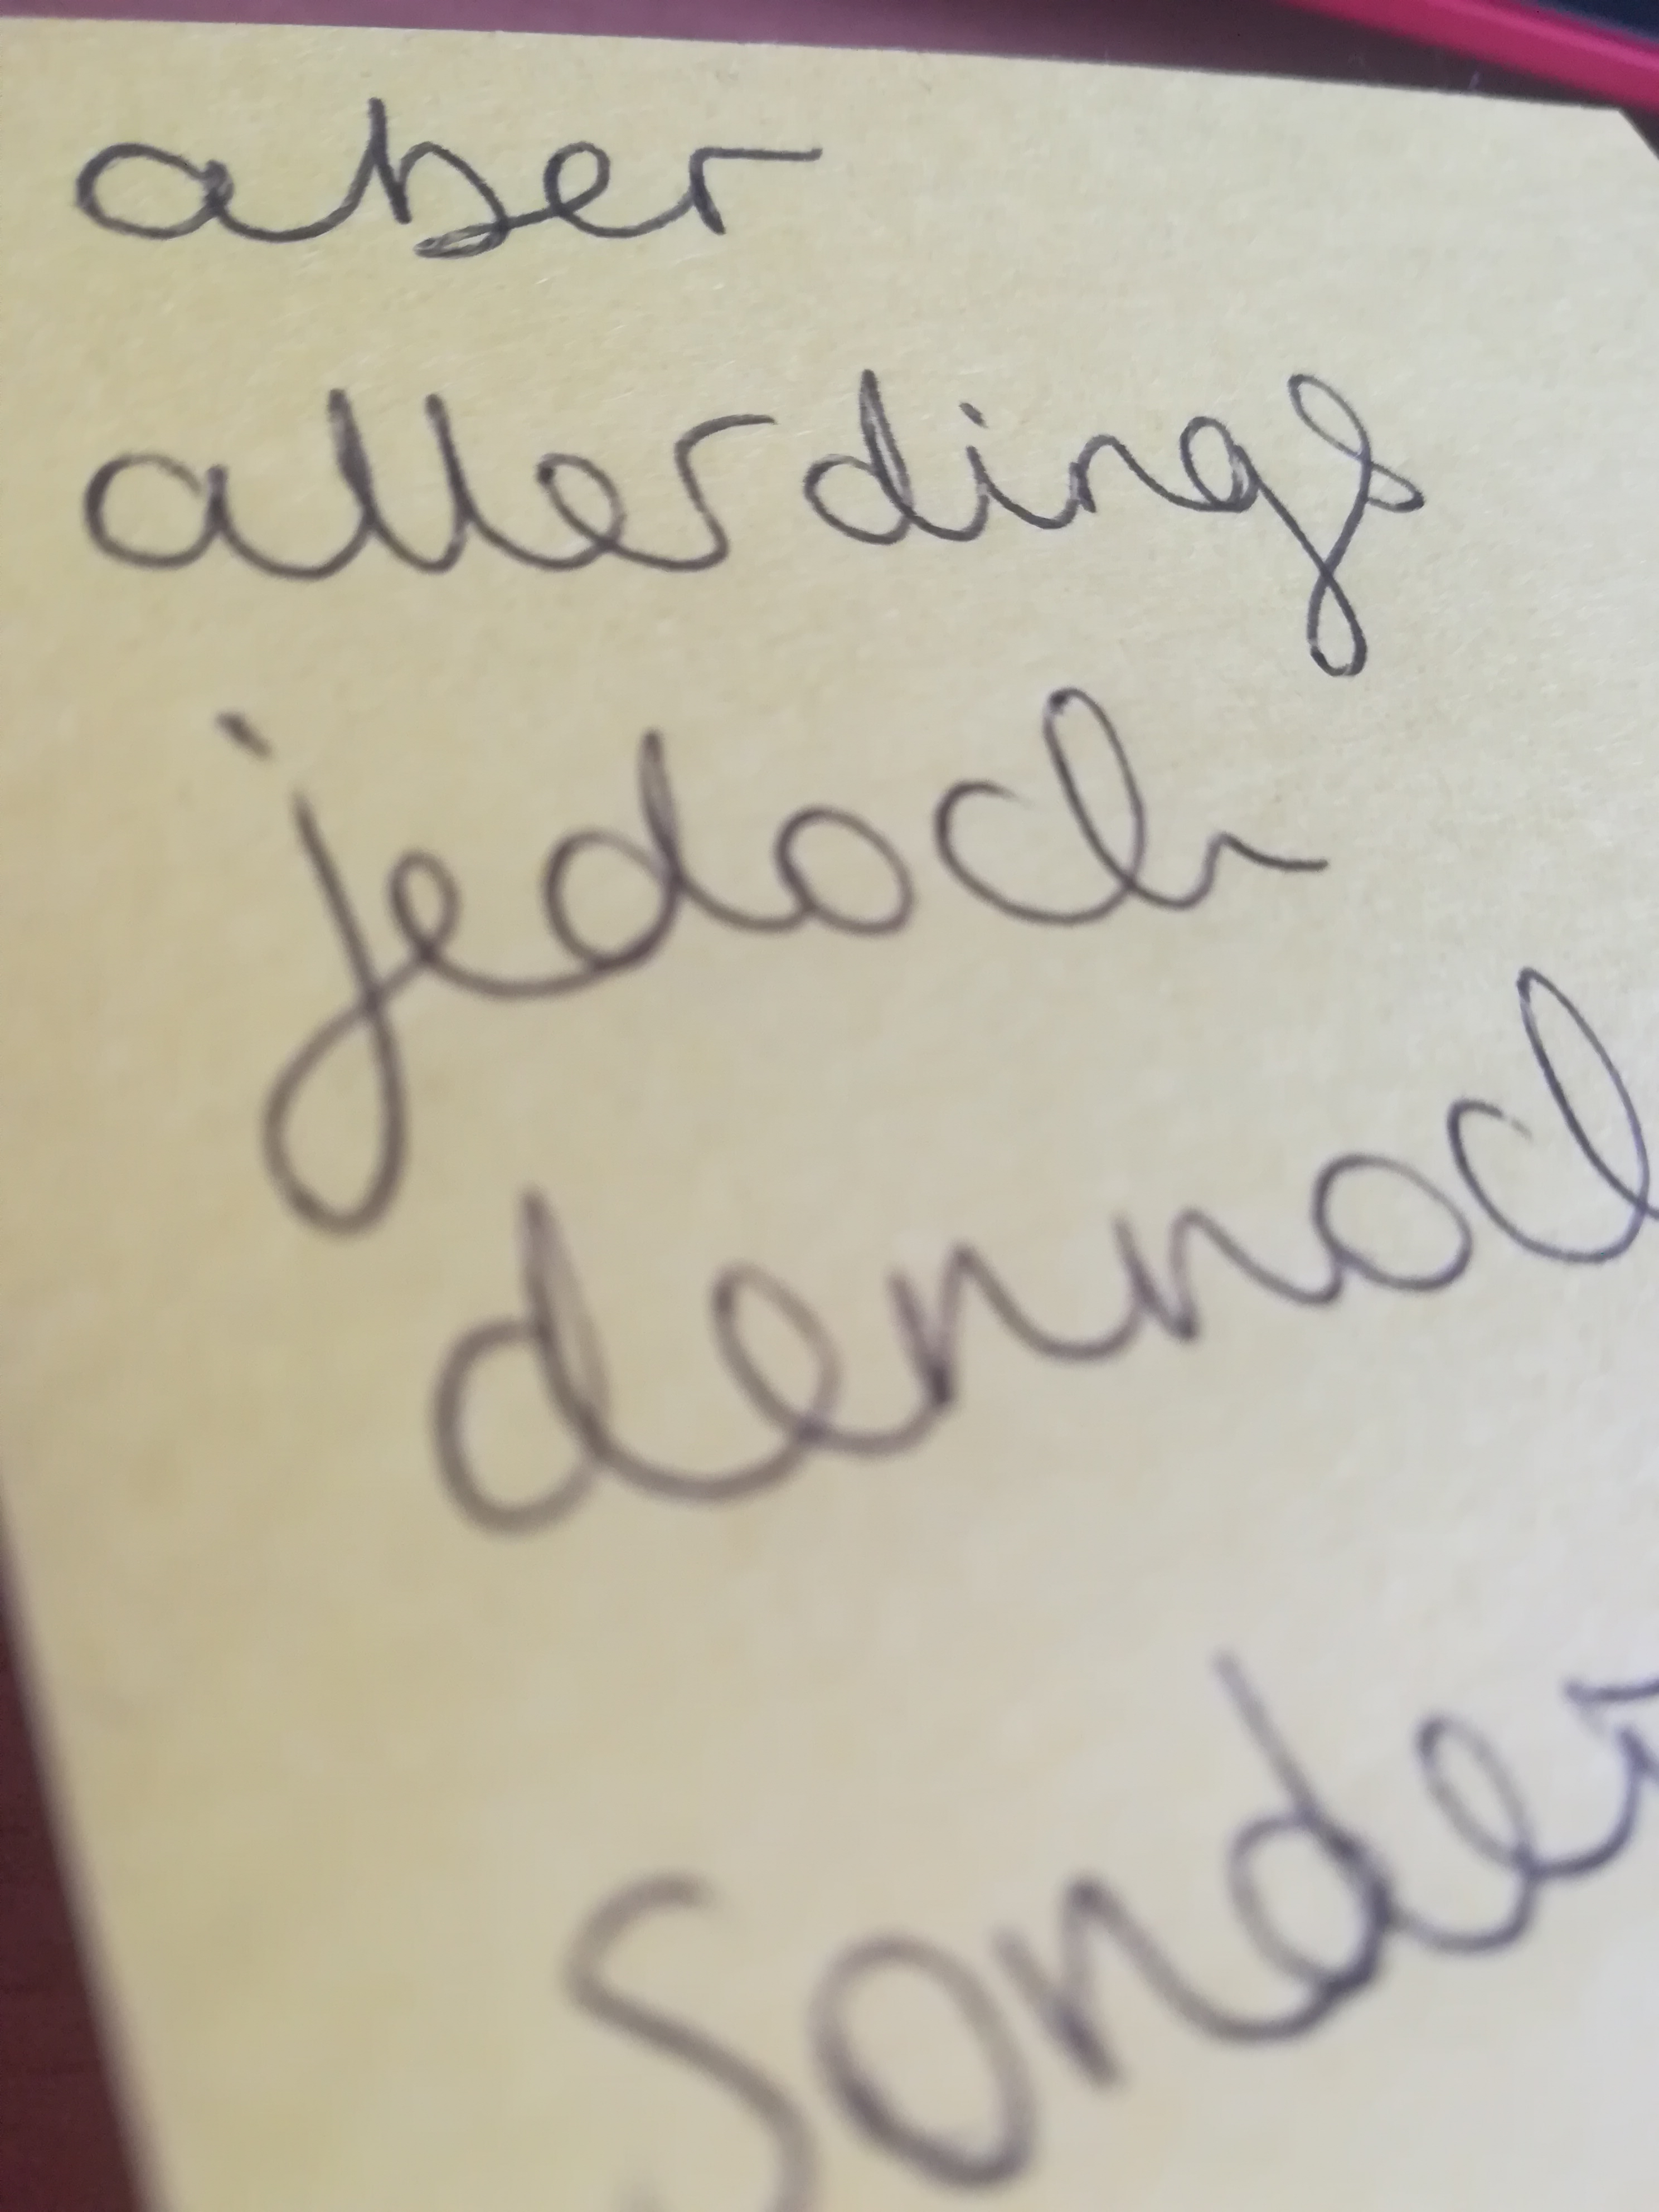 aber
allerdings
jedoch
dennoc
sonder